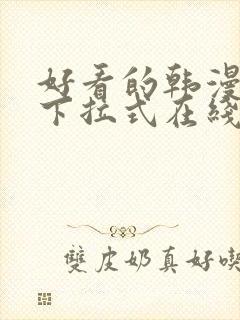 好看的韩漫
下拉式在线
雙皮奶真好喫